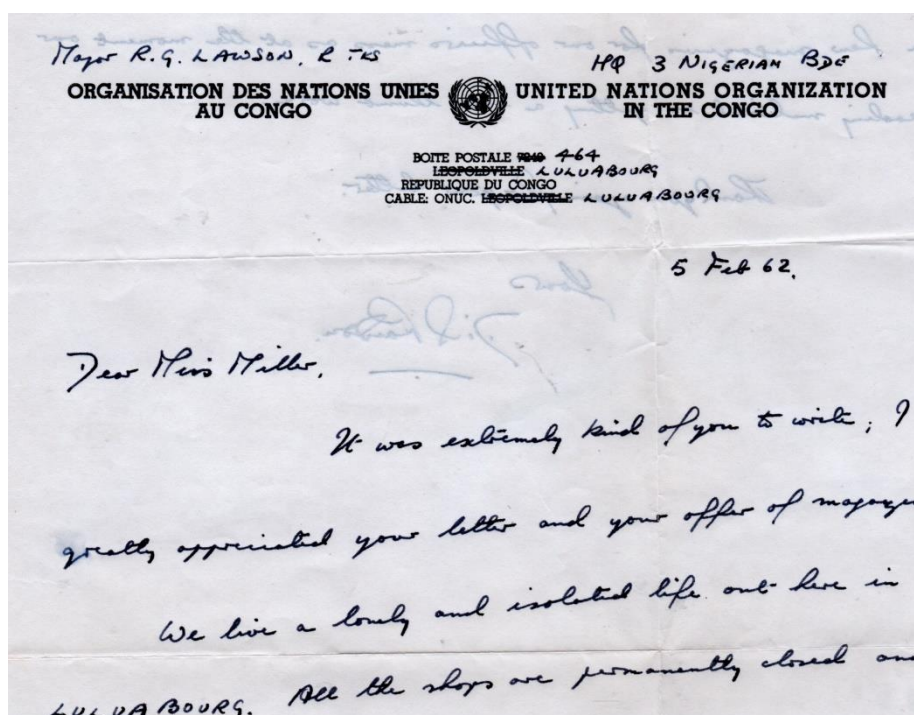 Major R.G. LAWSON, R TKS
HQ 3 NIGERIAN BDE
ORGANISATION DES NATIONS UNIES
AU CONGO
UNITED NATIONS ORGANIZATION
IN THE CONGO
BOITE POSTALE 7248 464
LEOPOLDVILLE LULUABOURG
REPUBLIQUE DU CONGO
CABLE: ONUC. LEOPOLDVILLE LULUABOURG
5 Feb 62.
Dear Miss Miller,
It was extremely kind of you to write; I
greatly appreciated your letter and your offer of
We live a lonely and isolated life out here in
LULUABOURG. All the shops are permanently closed and